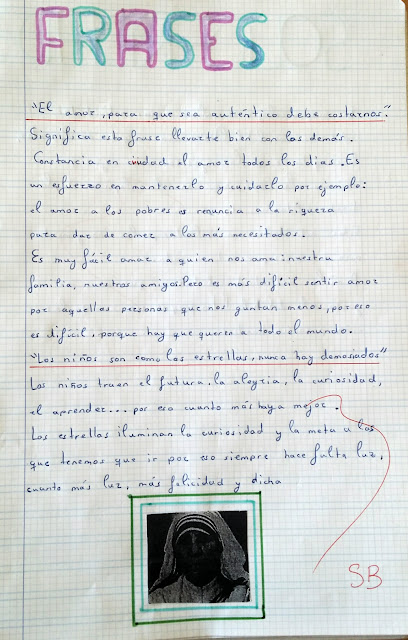 FRASES
"El amor, para que sea auténtico debe costarnos."
Significa esta frase llevarte bien con las demás.
Constancia en cuidad el amor todos los dias. Es
un esfuerzo en mantenerlo y cuidarlo por ejemplo:
el amor a los pobres es renuncia a la riqueza
para dar de comer a los más necesitados.
Es muy fácil amar a quien nos ama: nuestra
familia, nuestros amigos. Pero es más difícil sentir amor
por aquellas personas que nos gustan menos, por eso
es difícil, porque hay que querer a todo el mundo.
"Los niños son como las estrellas, nunca hay demasiados"
Los niños traen el futuro, la alegria, la curiosidad,
el aprender... por eso cuanto más haya mejor.
Las estrellas iluminan la curiosidad y la meta a las
que tenemos que ir por eso siempre hace falta luz,
cuanto más luz, más felicidad y dicha
SB